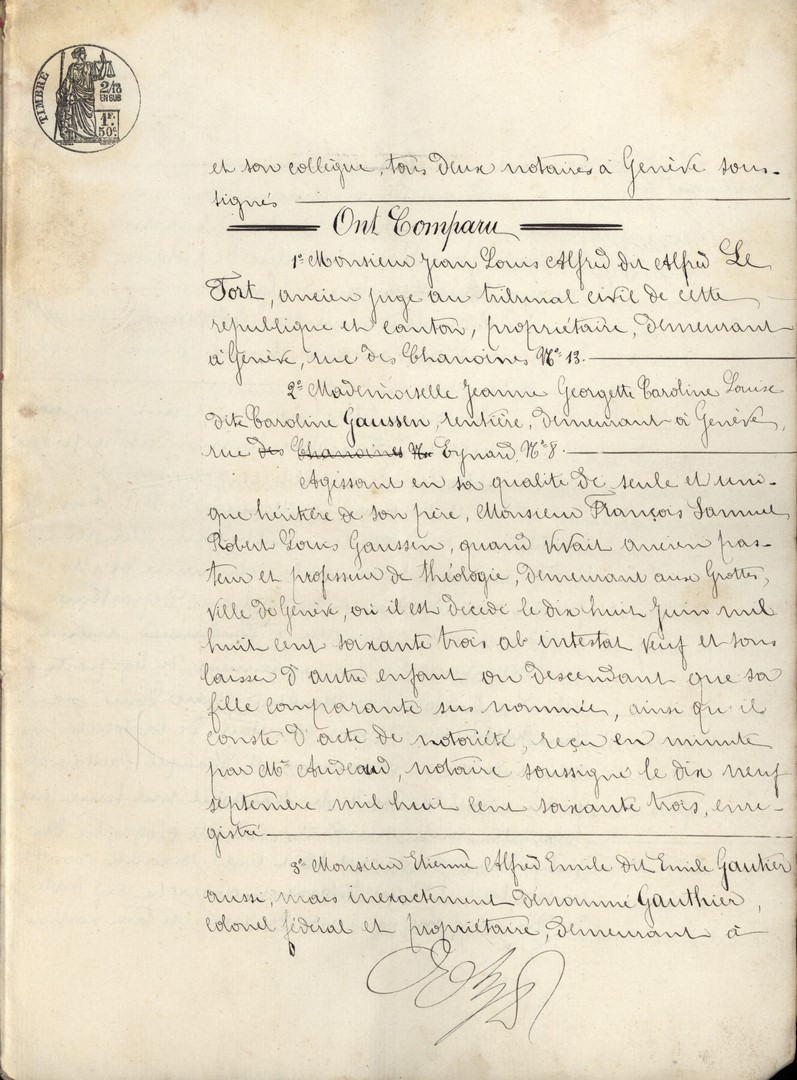 TIMBRE
2/10
EN SUS
1F.
50c.
et son collègue, tous deux notaires à Genève sous-
signés
Ont Comparu
1º Monsieur Jean Louis Alfred dit Alfred Le
Fort, ancien juge au tribunal civil de cette
république et canton, propriétaire, demeurant
à Genève, rue des Chanoines Nº 13.
2º Mademoiselle Jeanne Georgette Caroline Louise
dite Caroline Gaussen, rentière, demeurant à Genève,
rue des Chanoines Nº Eynard, Nº 8.
Agissant en sa qualité de seule et uni-
que héritière de son père, Monsieur François Samuel
Robert Louis Gaussen, quand vivait ancien pas-
teur et professeur de théologie, demeurant aux Grottes,
ville de Genève, où il est décédé le dix huit Juin mil
huit cent soixante trois ab intestat veuf et sans
laisser d'autre enfant ou descendant que sa
fille comparante sus nommée, ainsi qu'il
conste d'acte de notoriété, reçu en minute
par Me Audeoud, notaire soussigné le dix neuf
septembre mil huit cent soixante trois, enre-
gistré.
3º Monsieur Etienne Alfred Emile dit Emile Gautier
aussi, mais inexactement dénommé Gauthier,
colonel fédéral et propriétaire, demeurant à